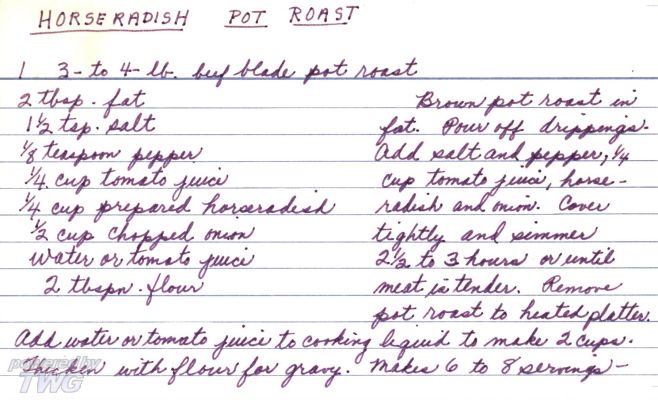 HORSERADISH POT ROAST
1 3- to 4-lb. beef blade pot roast
2 tbsp. fat
1 1/2 tsp. salt
1/8 teaspoon pepper
1/4 cup tomato juice
1/4 cup prepared horseradish
1/2 cup chopped onion
Water or tomato juice
2 tbspn. flour
Brown pot roast in
fat. Pour off drippings.
Add salt and pepper, 1/4
cup tomato juice, horse-
radish and onion. Cover
tightly and simmer
2 1/2 to 3 hours or until
meat is tender. Remove
pot roast to heated platter.
Add water or tomato juice to cooking liquid to make 2 cups.
Thicken with flour for gravy. Makes 6 to 8 servings-
powered by
TWG